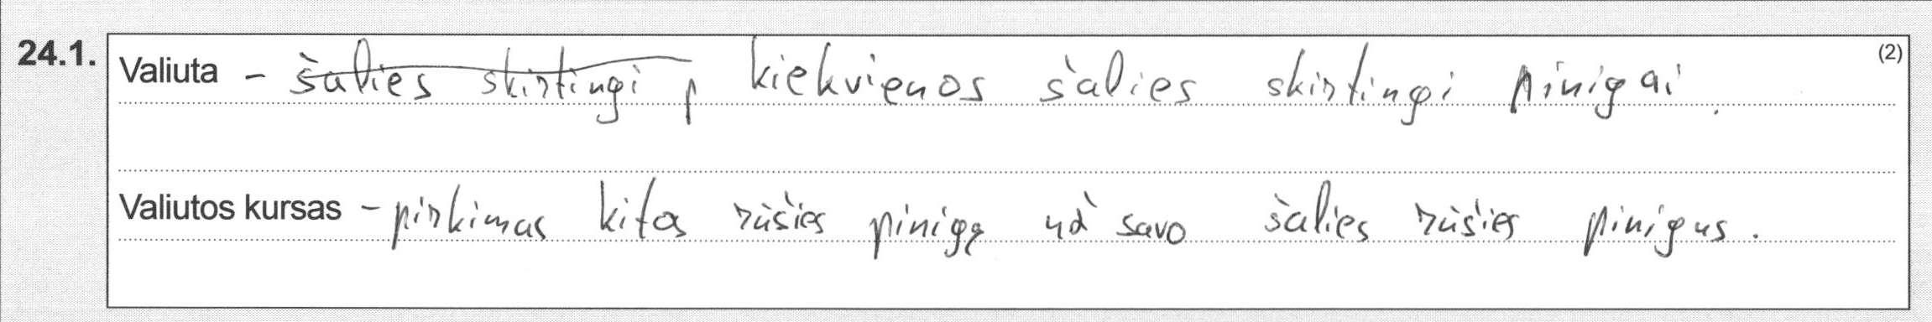 24.1.
(2)
Valiuta – šalies skirtingi p kiekvienos šalies skirtingi pinigai.
Valiutos kursas – pirkimas kitos rūšies pinigų už savo šalies rūšies pinigus.